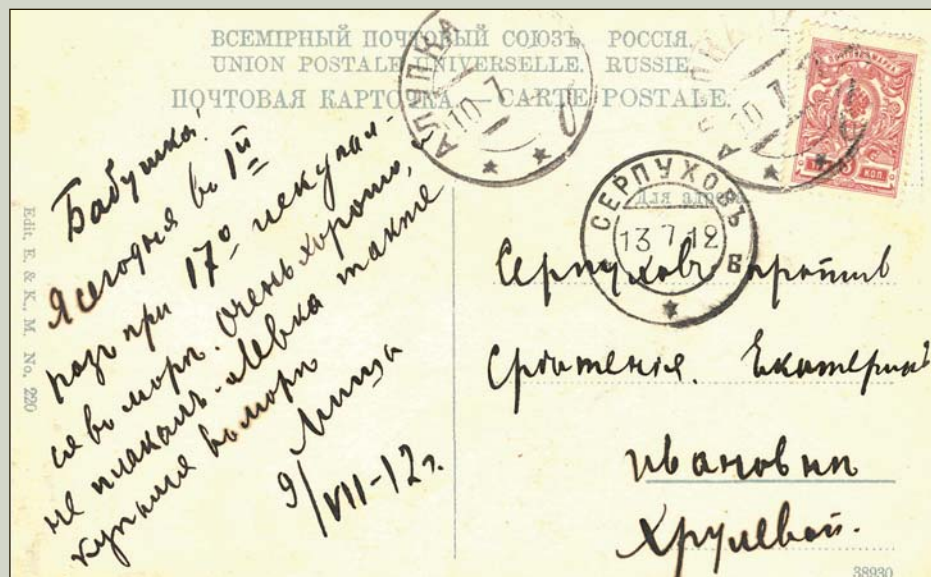 ВСЕМІРНЫЙ ПОЧТОВЫЙ СОЮЗЪ. РОССІЯ.
UNION POSTALE UNIVERSELLE. RUSSIE.
ПОЧТОВАЯ КАРТОЧКА — CARTE POSTALE.
АЛУПКА
10 7
АЛУПКА
10 7
КОП
СЕРПУХОВЪ
13 7 12
Б
Для адреса
Бабушка!
Я сегодня въ 1й
разъ при 17° искупал-
ся въ морѣ. Очень хорошо, я
не плакалъ. Левка также
купался въ морѣ
Миша
9/VII-12 г.
Серпуховъ против
Срѣтенія. Екатеринѣ
Ивановнѣ
Хрулевой.
Edit. E. & K., M. No. 220
38930